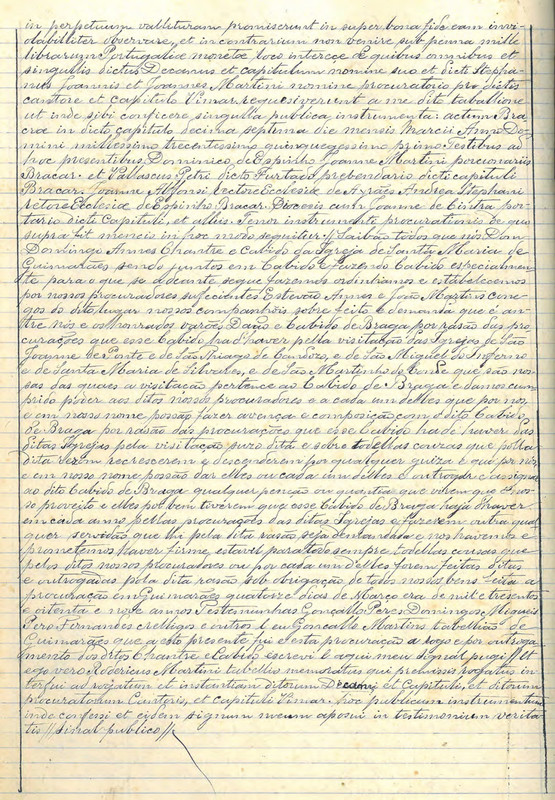 in perpetuum valituram promiserunt in super bona fide eam invi-
olabiliter observare, et in contrarium non venire sub penna mille
librarum Portugaliæ monetæ loco interece de quibus omnibus et
singullis dictus Decanus et capitulum nomine suo et dicti Stepha-
nus Joannis et Joannes Martini nomine procuratorio pro dictis
cantore et capitulo Vimar. requesiverunt a me dito taballione
ut inde sibi conficere singulla publica instrumenta: actum Bra-
cræ in dicto capitulo decima septima die mensis Marcii Anno Do-
mini millessimo trecentessimo quinquegessimo primo. Testibus ad
hoc presentibus Dominico de Espinho Joanne Martini porcionariis
Bracar. et Vallascus Petre dicto Furtado prebendario dicti capituli
Bracar. Joanne Alfonsi rectore Ecclesiæ de Ayraes Andrea Stephani
rectore Ecclesiæ de Espinho Bracar. Diocesis cum Joanne de Cintra por-
tario dicti Capituli, et alliis. Tenor instrumenti procurationis de qua
supra fit mencis in hoc modo sequitur // Saibão todos que nós Dom
Domingo Annes Chantre e Cabido da Igreja de Santa Maria de
Guimarães sendo juntos em Cabido e fazendo Cabido especialmen-
te para o que se adeante segue fazemos ordinhamos e estabelecemos
por nossos procuradores sufficientes Estevão Annes e João Martins cone-
gos do dito lugar nossos companhois sobre feito e demanda que é an-
tre nós e os honrados varões Daão e Cabido de Braga por rasão das pro-
curações que esse Cabido had'haver pella visitação das Igrejas de São
Joanne de Ponte e de São Thiago de Candozo, e de São Miguel do Inferno
e de Santa Maria de Silvares, e de São Martinho de Conde que são nos-
sas das quaes a visitação pertence ao Cabido de Braga e damos cum-
prido poder aos ditos nossos procuradores e a cada um delles que por nos
e em nosso nome possão fazer avença e composição com o dito Cabido
de Braga por rasão das procurações que esse Cabido ha de haver das
ditas Igrejas pela visitação suzo dita e sobre todallas couzas que polla
dita rezem recrescerem e descenderem por qualquer guiza e que por nós
e em nosso nome possão dar elles ou cada um delles e outrogar e assignar
ao dito Cabido de Braga qualquer penção ou quantia que virem que é nos-
so proveito e elles por bem tiverem que esse Cabido de Braga haja d'haver
em cada anno pellas procurações das ditas Igrejas e fazerem outra qual-
quer servidão que lhi pela dita rasão seja demandada e nos havemos e
promettemos d'haver firme, estavel para todo sempre todallas cousas que
pelos ditos nossos procuradores ou por cada um delles forem feitas ditas
e outrogadas pola dita rasão sob obrigação de todos nossos bens. Feita a
procuração em Guimarães quatorze dias de Março era de mil e tresentos
e oitenta e nove annos. Testemunhas Gonçallo Peres Domingos Migueis
Pero Fernandes crelligos e outros e eu Goncallo Martins tabellião de
Guimarães que a esto presente fui e esta procuração a rogo e por outroga-
mento dos ditos Chantre e Cabido escrevi e aqui meu signal pugi // Et
ego vero Rodericus Martini tabellio memoratus qui premissis rogatus in-
terfui ad rogatum et instantiam ditorum Decani et Capituli, et ditorum
procuratorum Cantoris, et capituli Vimar. hoc publicum instrumentum
inde confessi et eidem signum meum aposui in testimonium verita-
tis // Sinal publico //.